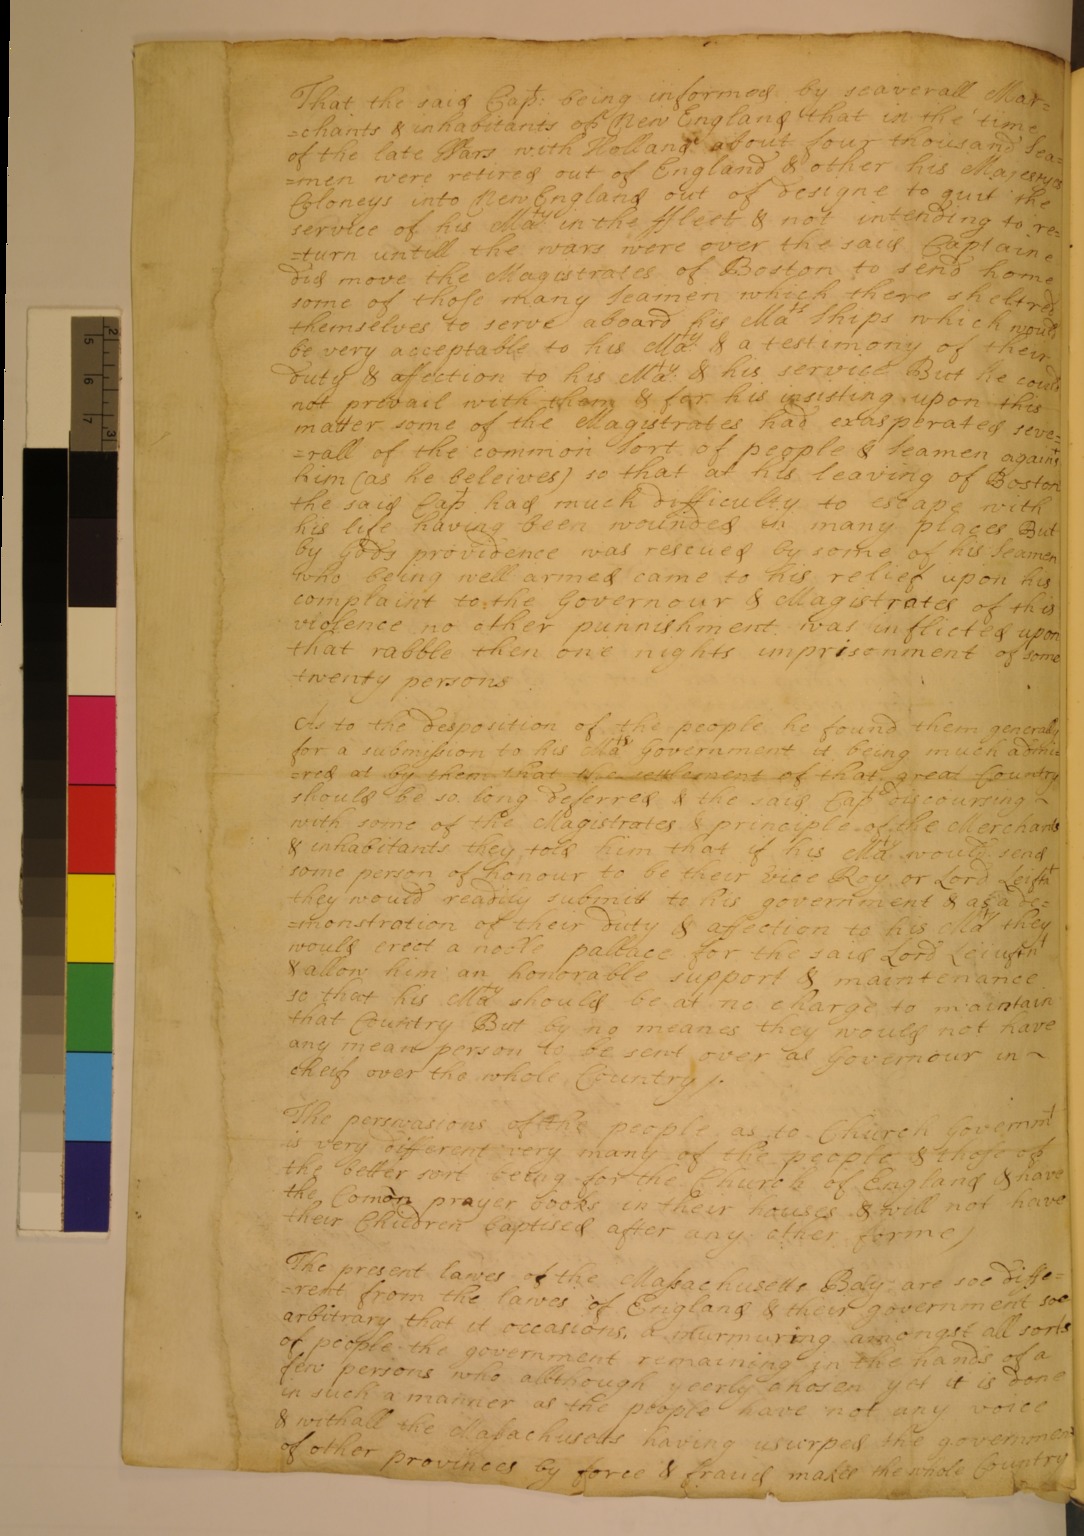 That the said Capt: being informed by seaverall Mar=
=chants & inhabitants of New England that in the time
of the late Wars with Holland about four thousand Sea=
=men were retired out of England & other his Majestyes
Coloneys into New England out of designe to quit the
service of his Maty in the ffleet & not intending to re=
=turn untill the wars were over the said Captaine
did move the Magistrates of Boston to send home
some of those many Seamen which there sheltred
themselves to serve aboard his Mats Ships which would
be very acceptable to his Maty & a testimony of their
duty & affection to his Maty & his service But he could
not prevail with them & for his insisting upon this
matter some of the Magistrates had exasperated seve=
=rall of the common sort of people & Seamen against
him (as he beleives) so that at his leaving of Boston
the said Capt had much difficulty to escape with
his life having been wounded in many places But
by Gods providence was rescued by some of his Seamen
who being well armed came to his relief upon his
complaint to the Governour & Magistrates of this
violence no other punnishment was inflicted upon
that rabble then one nights imprisonment of some
twenty persons
As to the desposition of the people he found them generally
for a submission to his Mats Government it being much admi=
=red at by them that the setlement of that great Country
should be so long deferred & the said Capt discoursing ~
with some of the Magistrates & principle of the Merchants
& inhabitants they told him that if his Maty would send
some person of honour to be their Vice Roy or Lord Leiftt
they would readily submitt to his government & as a de=
=monstration of their duty & affection to his Maty they
would erect a noble pallace for the said Lord Leiuftnt
& allow him an honorable support & maintenance
so that his Maty should be at no charge to maintain
that Country But by no meanes they would not have
any mean person to be sent over as Governour in ~
cheif over the whole Country /.
The perswasions of the people as to Church Governmt
is very different very many of the people & those of
the better sort being for the Church of England & have
the Comon prayer books in their houses & will not have
their Children baptised after any other forme /
The present lawes of the Massachusetts Bay are soe diffe=
=rent from the lawes of England & their government soe
arbitrary that it occasions a murmuring amongst all sorts
of people the government remaining in the hands of a
few persons who although yeerly chosen yet it is done
in such a manner as the people have not any voice
& withall the Massachusets having usurped the government
of other provinces by force & fraud makes the whole Country